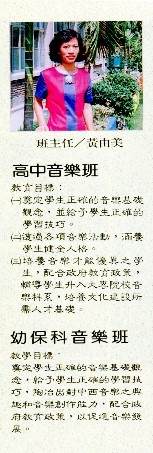 班主任／黃由美
高中音樂班
教育目標：
㈠奠定學生正確的音樂基礎
觀念，並給予學生正確的
學習技巧。
㈡透過各項音樂活動，涵養
學生健全人格。
㈢培養音樂才能優異之學
生，配合政府教育政策，
輔導學生升入大專院校音
樂科系，培養文化建設所
需人才基礎。
幼保科音樂班
教學目標：
奠定學生正確的音樂基礎觀
念，給予學生正確的學習技
巧，陶冶出對中西音樂之興
趣和音樂創作能力，配合政
府教育政策，以促進音樂發
展。